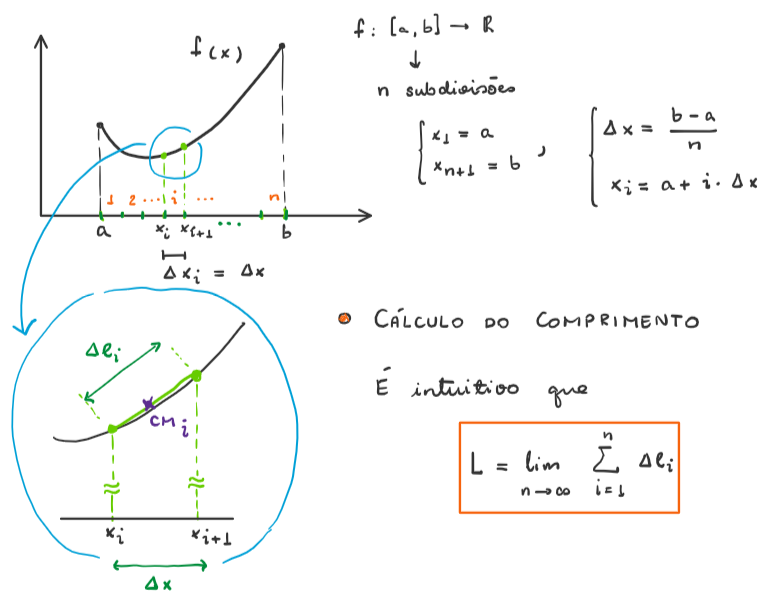 f(x)
1 2 ... i ... n
a x_i x_{i+1} ... b
Δx_i = Δx
f: [a, b] → ℝ
↓
n subdivisões
{ x_1 = a
x_{n+1} = b ,
{ Δx = (b - a) / n
x_i = a + i · Δx
Δℓ_i
CM_i
x_i x_{i+1}
Δx
• CÁLCULO DO COMPRIMENTO
É intuitivo que
L = lim_{n→∞} ∑_{i=1}^{n} Δℓ_i